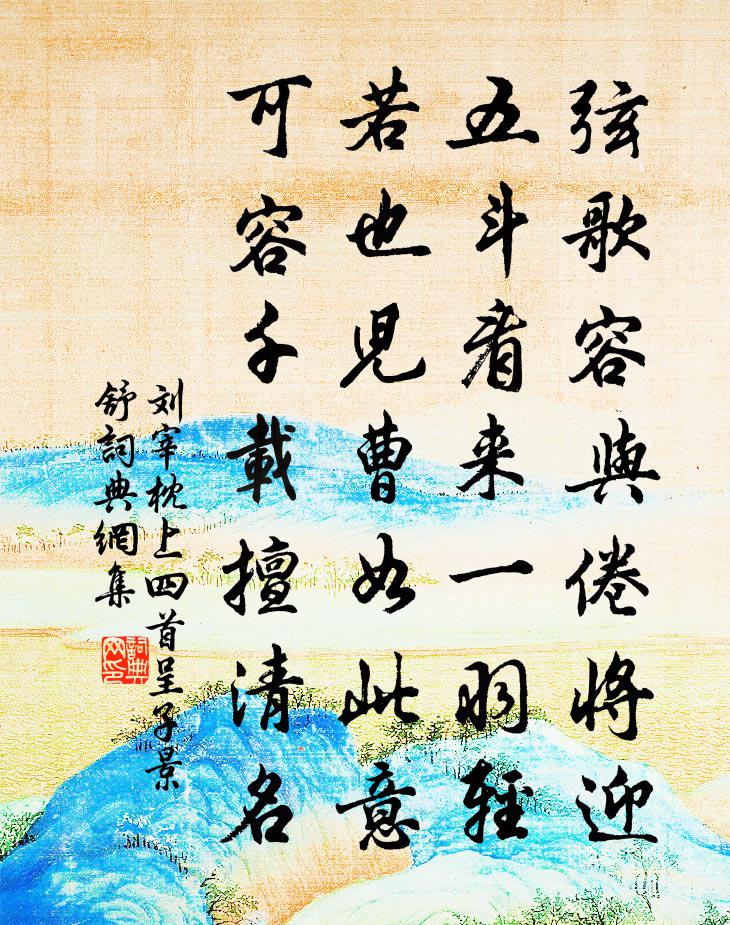 弦歌容與倦將迎
五斗看来一羽轻
若也児曹如此意
可容千載擅清名
刘宰枕上四首呈子景
舒詞典網集
詞典
网印